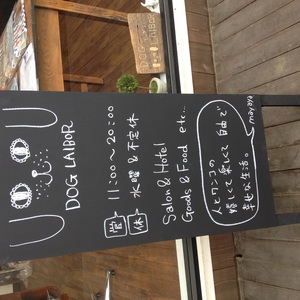 DOG LAIBOR
営 11:00~20:00
休 水曜 & 不定休
Salon & Hotel
Goods & Food etc...
人とワンコの
嬉しくて楽しくて 自由で
幸せな生活。
DOG LAIBOR